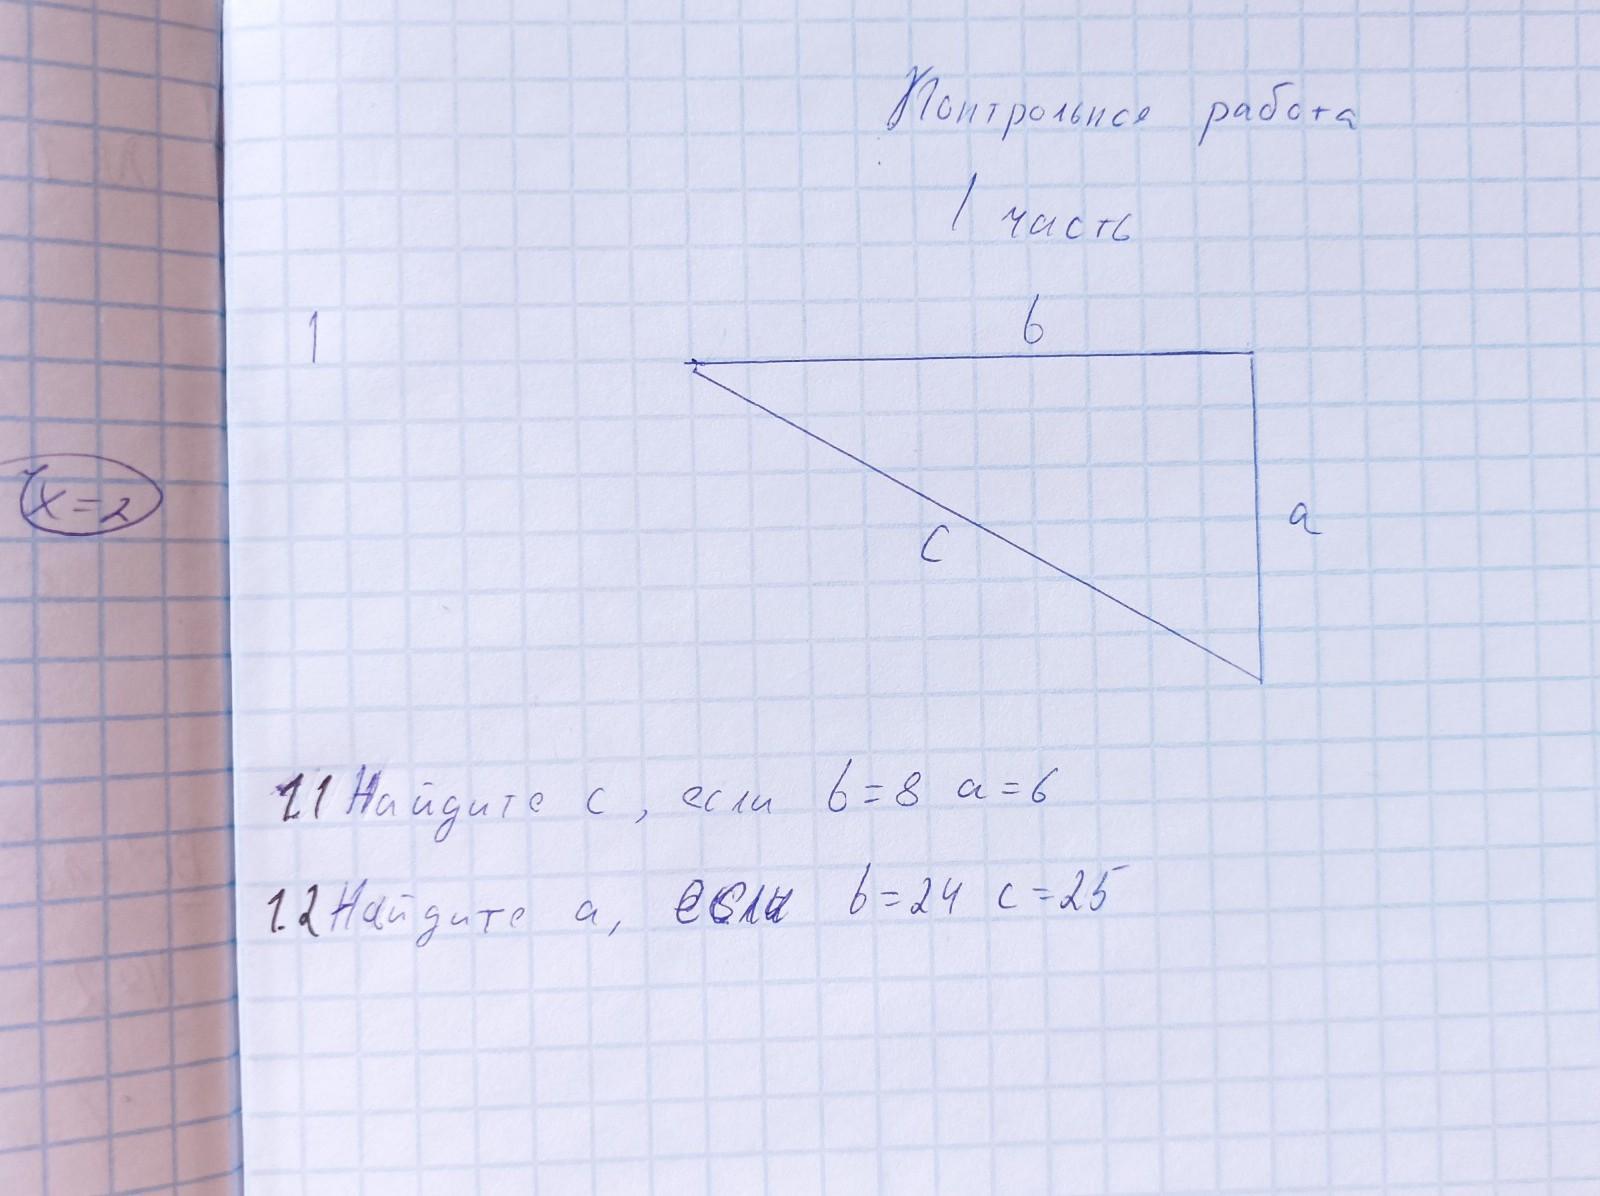 Контрольная работа
1 часть
1
b
a
c
x=2
1.1 Найдите c, если b=8 a=6
1.2 Найдите a, если b=24 c=25